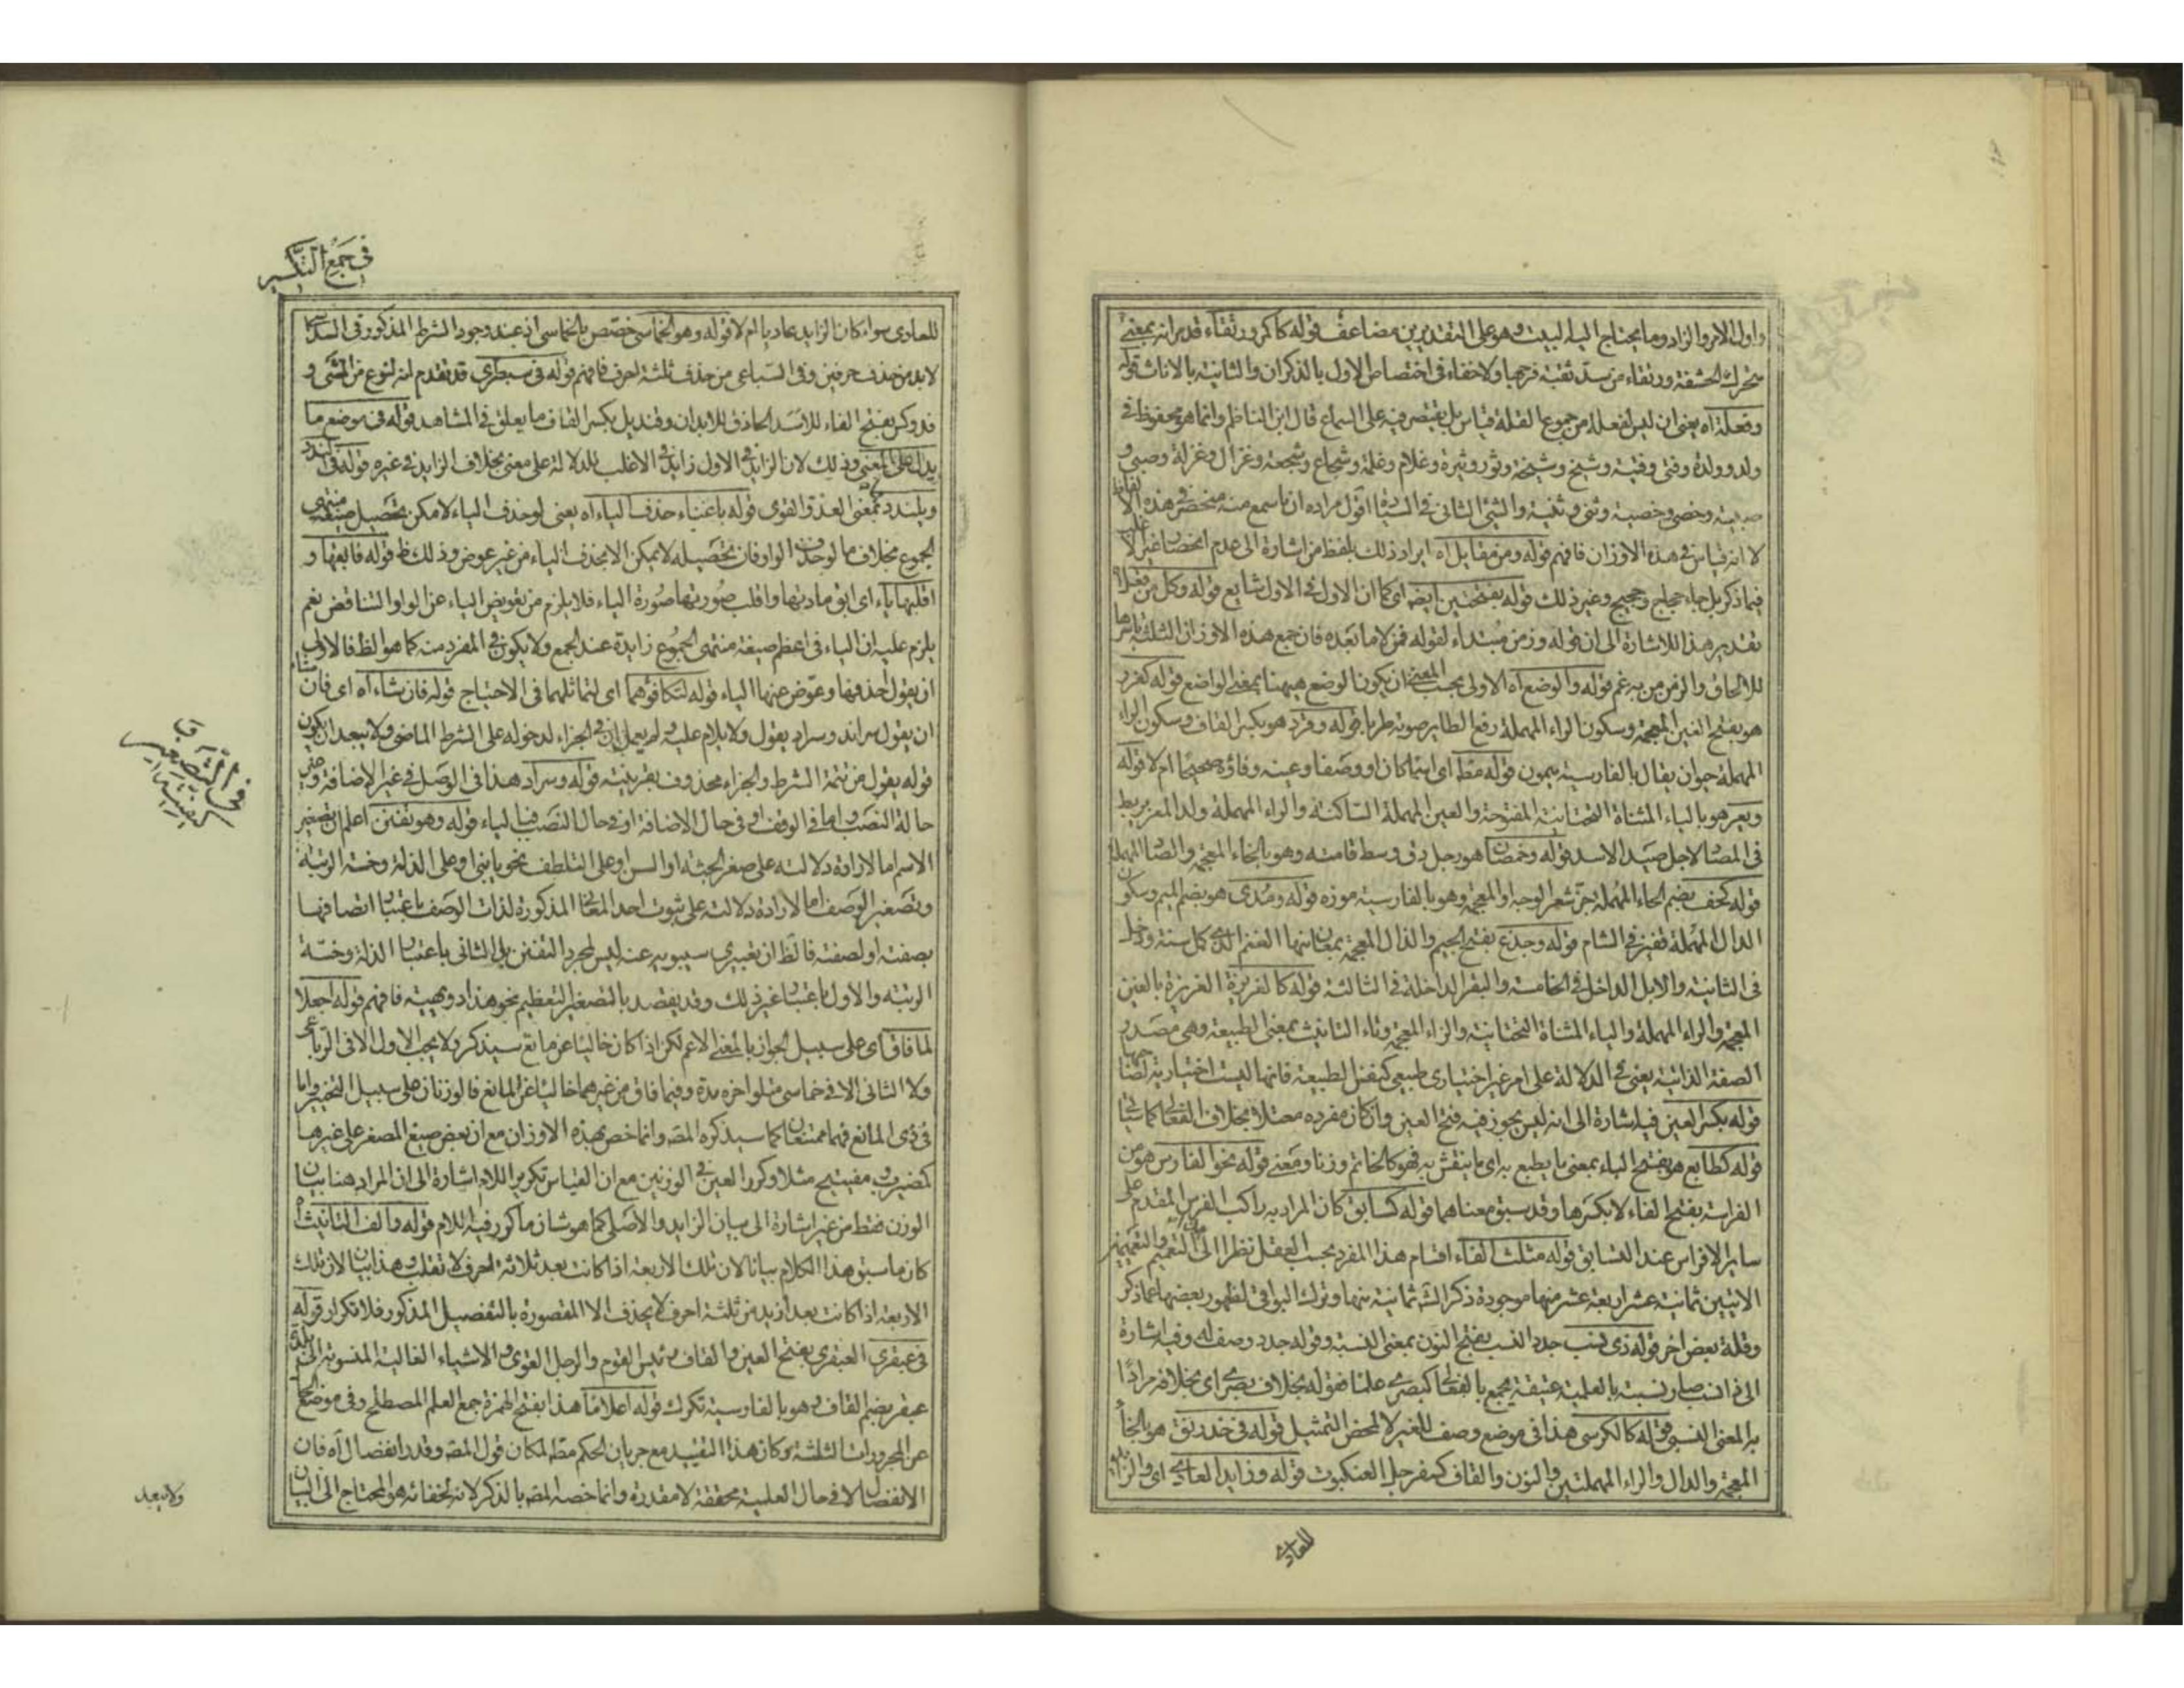 واول الامر والزاد وما يحتاج اليه البيت وهو على التقديرين مضاعف قوله كاكر ورتقاء قد مر انه بمعنى
الحشفة ورتقاء من سد ثقبة فرجها ولا خفاء فى اختصاص الاول بالذكران والثانية بالاناث قوله
وفعلة اه يعنى ان ليس لفعلة من جموع القلة قياس بل يقتصر فيه على السماع قال ابن الناظم وانما هو محفوظ فى
ولد وولدة وفتى وفتية وشيخ وشيخة وثور وثيرة وغلام وغلمة وشجاع وشجعة وغزال وغزلة وصبى و
صبية وخصى وخصية وثنى وثنية والثنى الثانى فى السيادة اقول مراده ان ما سمع منه منحصر فى هذه الالفاظ
لا انه قياس فى هذه الاوزان فافهم قوله ومن مقابل اه ايراد ذلك بلفظ من اشارة الى عدم انحصار
فيما ذكر بل جاء حجلج وحجيج وغير ذلك قوله بفتحتين ايضا اى كما ان الاول فى الاول شايع قوله وكل من فعلا
تقدير هذا للاشارة الى ان قوله وزمن مبتداء لقوله قمن لا ما بعده فان جمع هذه الاوزان الثلثة باسرها
للالحاق والزمن من به غم قوله والوضع اه الاولى بحسب المعنى ان يكون الوضع هيهنا بمعنى الواضع قوله كغرد
هو بفتح الغين المعجمة وسكون الراء المهملة رفع الطاير صوته طربا قوله وقرد هو بكسر القاف وسكون الراء
المهملة حيوان يقال بالفارسية ميمون قوله مط اى اسما كان او وصفا وعينه وفاؤه صحيحا ام لا قوله
ويعر هو بالياء المثناة التحتانية المفتوحة والعين المهملة الساكنة والراء المهملة ولد المعز يربط
فى المصا لاجل صيد الاسد قوله وخمصان هو رجل دق وسط قامته وهو بالخاء المعجمة والصاد المهملة
قوله كخف بضم الخاء وهو بالفارسية موزه قوله ومدى هو بضم الميم وسكون
الدال المهملة قفيز فى الشام قوله وجدع بفتح الجيم والذال المعجمة بمعان منها الغنم الذى كل سنة ودخل
فى الثانية والابل الداخل فى الخامسة والبقر الداخلة فى الثالثة قوله كالغريزة الغريزة بالغين
المعجمة والراء المهملة والياء المثناة التحتانية والزاء المعجمة وتاء التانيث بمعنى الطبيعة وهى مصدر
الصفة الذاتية يعنى فى الدلالة على امر غير اختيارى طبيعى كفعل الطبيعة فانها ليست اختيارية لصاحبها
قوله بكسر العين فيه اشارة الى انه ليس يجوز فيه فتح العين وان كان مفرده معتلا بخلاف الفعالى كما سياتى
قوله كطابع هو بفتح الباء بمعنى ما يطبع به اى ما ينقش به فهو كالخاتم وزنا ومعنى قوله نحو الفارس هو من
الفراسة بفتح الفاء لا بكسرها وقد سبق معناهما قوله كسابق كان المراد به راكب الفرس المقدم على
ساير الافراس عند السابق قوله مثلث الفاء اقسام هذا المفرد بحسب العقل نظرا الى التعميم والتعميمين
الاتيين ثمانية عشر اربعة عشر منها موجودة ذكر الش ثمانية منها وترك البواقى لظهور بعضها مما ذكر
وقلة بعض اخر قوله ذى نسب جدد النسب بفتح النون بمعنى النسبة وقوله جدد وصف له وفيه اشارة
الى ان ذا نسب صار نسبته بالعلمية عتيقة يجمع بالفعالى كبصرى علما فقوله بخلاف بصرى اى بخلافه مرادا
به المعنى النسبى قوله كالكرسى هذا فى موضع وصف للغير لا لمحض التمثيل قوله فى خدرنق هو بالخاء
المعجمة والدال والراء المهملتين والنون والقاف كسفرجل العنكبوت قوله وزايد العادى اى والزايد
للعادى
فى جمع التكسير
للعادى سواء كان الزايد عاديا ام لا قوله وهو الخماسى خصص بالخماسى اذ عند وجود الشرط المذكور فى السداسى
لابد من حذف حرفين وفى السباعى من حذف ثلثة احرف فافهم قوله فى سبطرى قد تقدم انه نوع من المشى و
فدوكس بفتح الفاء للاسد الحاذق للابدان وقنديل بكسر القاف ما يعلق فى المشاهد قوله فى موضع ما
يدل على المعنى وذلك لان الزايد فى الاول زايد فى الاغلب للدلالة على معنى بخلاف الزايد فى غيره قوله فى الندد
ويلندد بمعنى العدو القوى قوله باغناء حذف الياء اه يعنى لو حذف الياء لامكن تحصيل صيغة منتهى
الجموع بخلاف ما لو حذف الواو فان تحصيله لا يمكن الا بحذف الياء من غير عوض وذلك ظ قوله فابقها و
اقلبها ياء اى ابق مادتها واقلب صورتها صورة الياء فلا يلزم من تعويض الياء عن الواو التناقض نعم
يلزم عليه ان الياء فى اعظم صيغة منتهى الجموع زايدة عند الجمع ولا يكون فى المفرد منه كما هو الظ فالاولى
ان يقول احذفها وعوض عنها الياء قوله لتكافؤهما اى لتماثلهما فى الاحتياج قوله فان شاء اه اى فان شاء
ان يقول سراند وسراد يقول ولا يلام عليه ولم يعمل ان فى الجزاء لدخوله على الشرط الماضى ولا يبعد ان يكون
قوله يقول من تتمة الشرط والجزاء محذوف بقرينته قوله وسراد هذا فى الوصل فى غير الاضافة وفى
حالة النصب واما فى الوقف او فى حال الاضافة او فى حال النصب فبالياء قوله وهو تفنن اعلم ان تصغير
الاسم اما لارادة دلالته على صغر الجثة او السن او على التلطف نحو يا بنى او على الذلة وخسة الرتبة
وتصغير الوصف اما لارادة دلالته على ثبوت احد المعانى المذكورة لذات الوصف باعتبار اتصافها
بصفته او لصفته فالظ ان تعبيرى سيبويه عنه ليس لمجرد التفنن بل الثانى باعتبار الذلة وخسة
الرتبة والاول باعتبار غير ذلك وقد يقصد بالتصغير التعظيم نحو هذا دويهية فافهم قوله اجعلا
لما فاق اى على سبيل الجواز بالمعنى الاعم لكن اذا كان خاليا عن مانع سيذكر ولا يجب الاول الا فى الرباعى
ولا الثانى الا فى خماسى متلو اخره مدة وفيما فاق من غيرهما خاليا عن المانع فالوزنان على سبيل التخيير واما
فى ذى المانع فهما ممتنعان كما سيذكره المص وانما خص بهذه الاوزان مع ان بعض صيغ المصغر على غيرها
كمضيرب ومفيتيح مثلا وكرر العين فى الوزنين مع ان القياس تكرير اللام اشارة الى ان المراد هنا بيان
الوزن فقط من غير اشارة الى بيان الزايد والاصلى كما هو شان ما كرر فيه اللام قوله والف التانيث
كان ما سبق هذا الكلام بيانا لان تلك الاربعة اذا كانت بعد ثلاثة احرف لا تقلب وهذا بيان لان تلك
الاربعة اذا كانت بعد ازيد من ثلثة احرف لا يحذف الا المقصورة بالتفصيل المذكور فلا تكرار قوله
فى عبقرى العبقرى بفتح العين والقاف رئيس القوم والرجل القوى والاشياء الغالية المنسوبة الى بلدة
عبقر بضم القاف وهو بالفارسية تكرك قوله اعلاما هذا بفتح الهمزة جمع العلم المصطلح وفى موضع الحال
عن المجرورات الثلثة وكان هذا التقييد مع جريان الحكم مط لمكان قول المص وقدر انفصال اه فان
الانفصال لا فى حال العلمية محققة لا مقدرة وانما خصه المص بالذكر لانه لخفائه هو المحتاج الى البيان
ولا يبعد